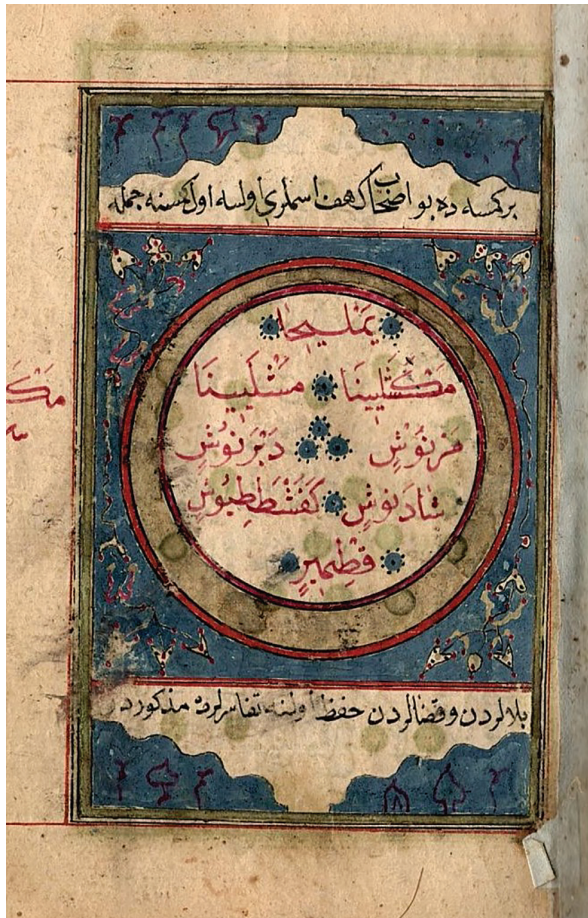 بر كمسه ده بو اصحاب كهف اسملرى اولسه اول كمسنه جمله
يَمْلِيخَا
مَكْثَلِينَا مَثْلَيِينَا
مَرْنُوشِ دَبَرْنُوشِ
شَادَنُوشِ كَفَشْطَطِيُوشِ
قِطْمِيرٍ
بلالردن وقضالردن حفظ اولنه تفاسيرلرده مذكوردر
مك